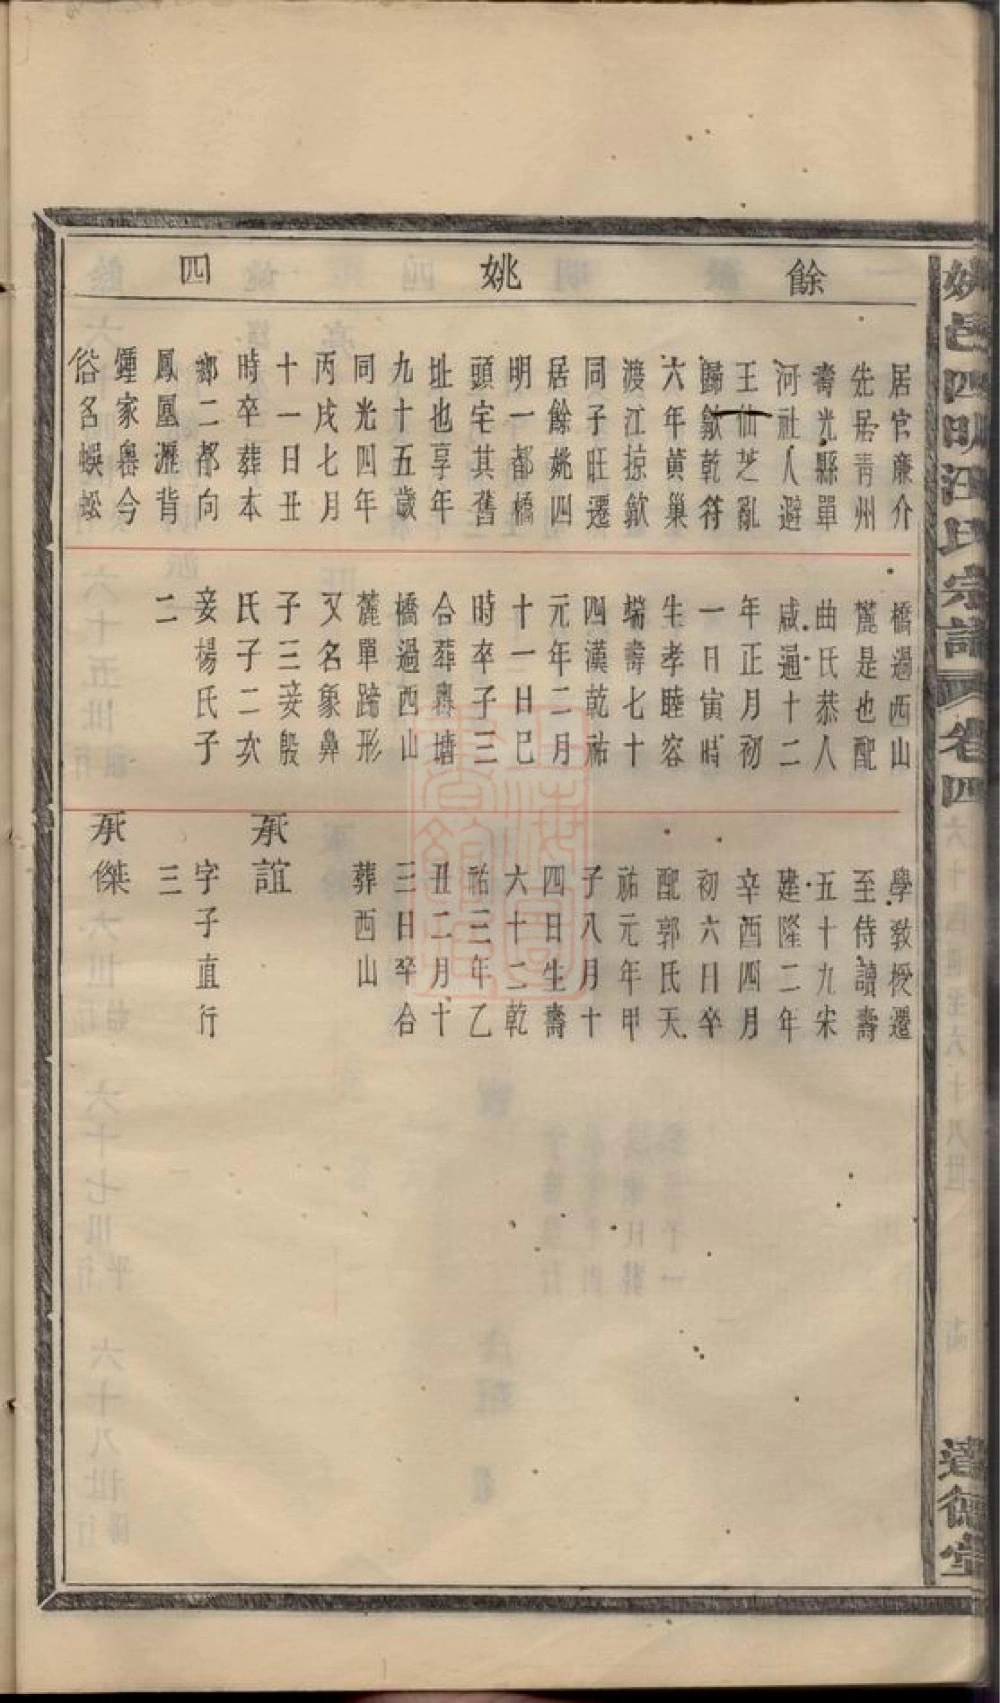 餘姚四
居官廉介
先居青州
壽光縣單
河社人避
王仙芝亂
歸歙乾符
六年黃巢
渡江掠歙
同子旺遷
居餘姚四
明一都橋
頭宅其舊
址也享年
九十五歲
同光四年
丙戌七月
十一日丑
時卒葬本
鄉二都向
鳳凰瀝背
煙家嶴今
俗名蜈蚣
橋過西山
麓是也配
曲氏恭人
咸通十二
年正月初
一日寅時
生孝睦容
端壽七十
四漢乾祐
元年二月
十一日巳
時卒子三
合葬嶴塘
橋過西山
麓單蹄形
又名象鼻
子三妾殷
氏子二次
妾楊氏子
二
學教授遷
至侍讀壽
五十九宋
建隆二年
辛酉四月
初六日卒
配郭氏天
祐元年甲
子八月十
四日生壽
六十二乾
祐三年乙
丑二月十
三日卒合
葬西山
承誼
字子直行
三
承傑
姚邑四明汪氏宗譜 卷四
六十四世至六十八世
十四
達德堂